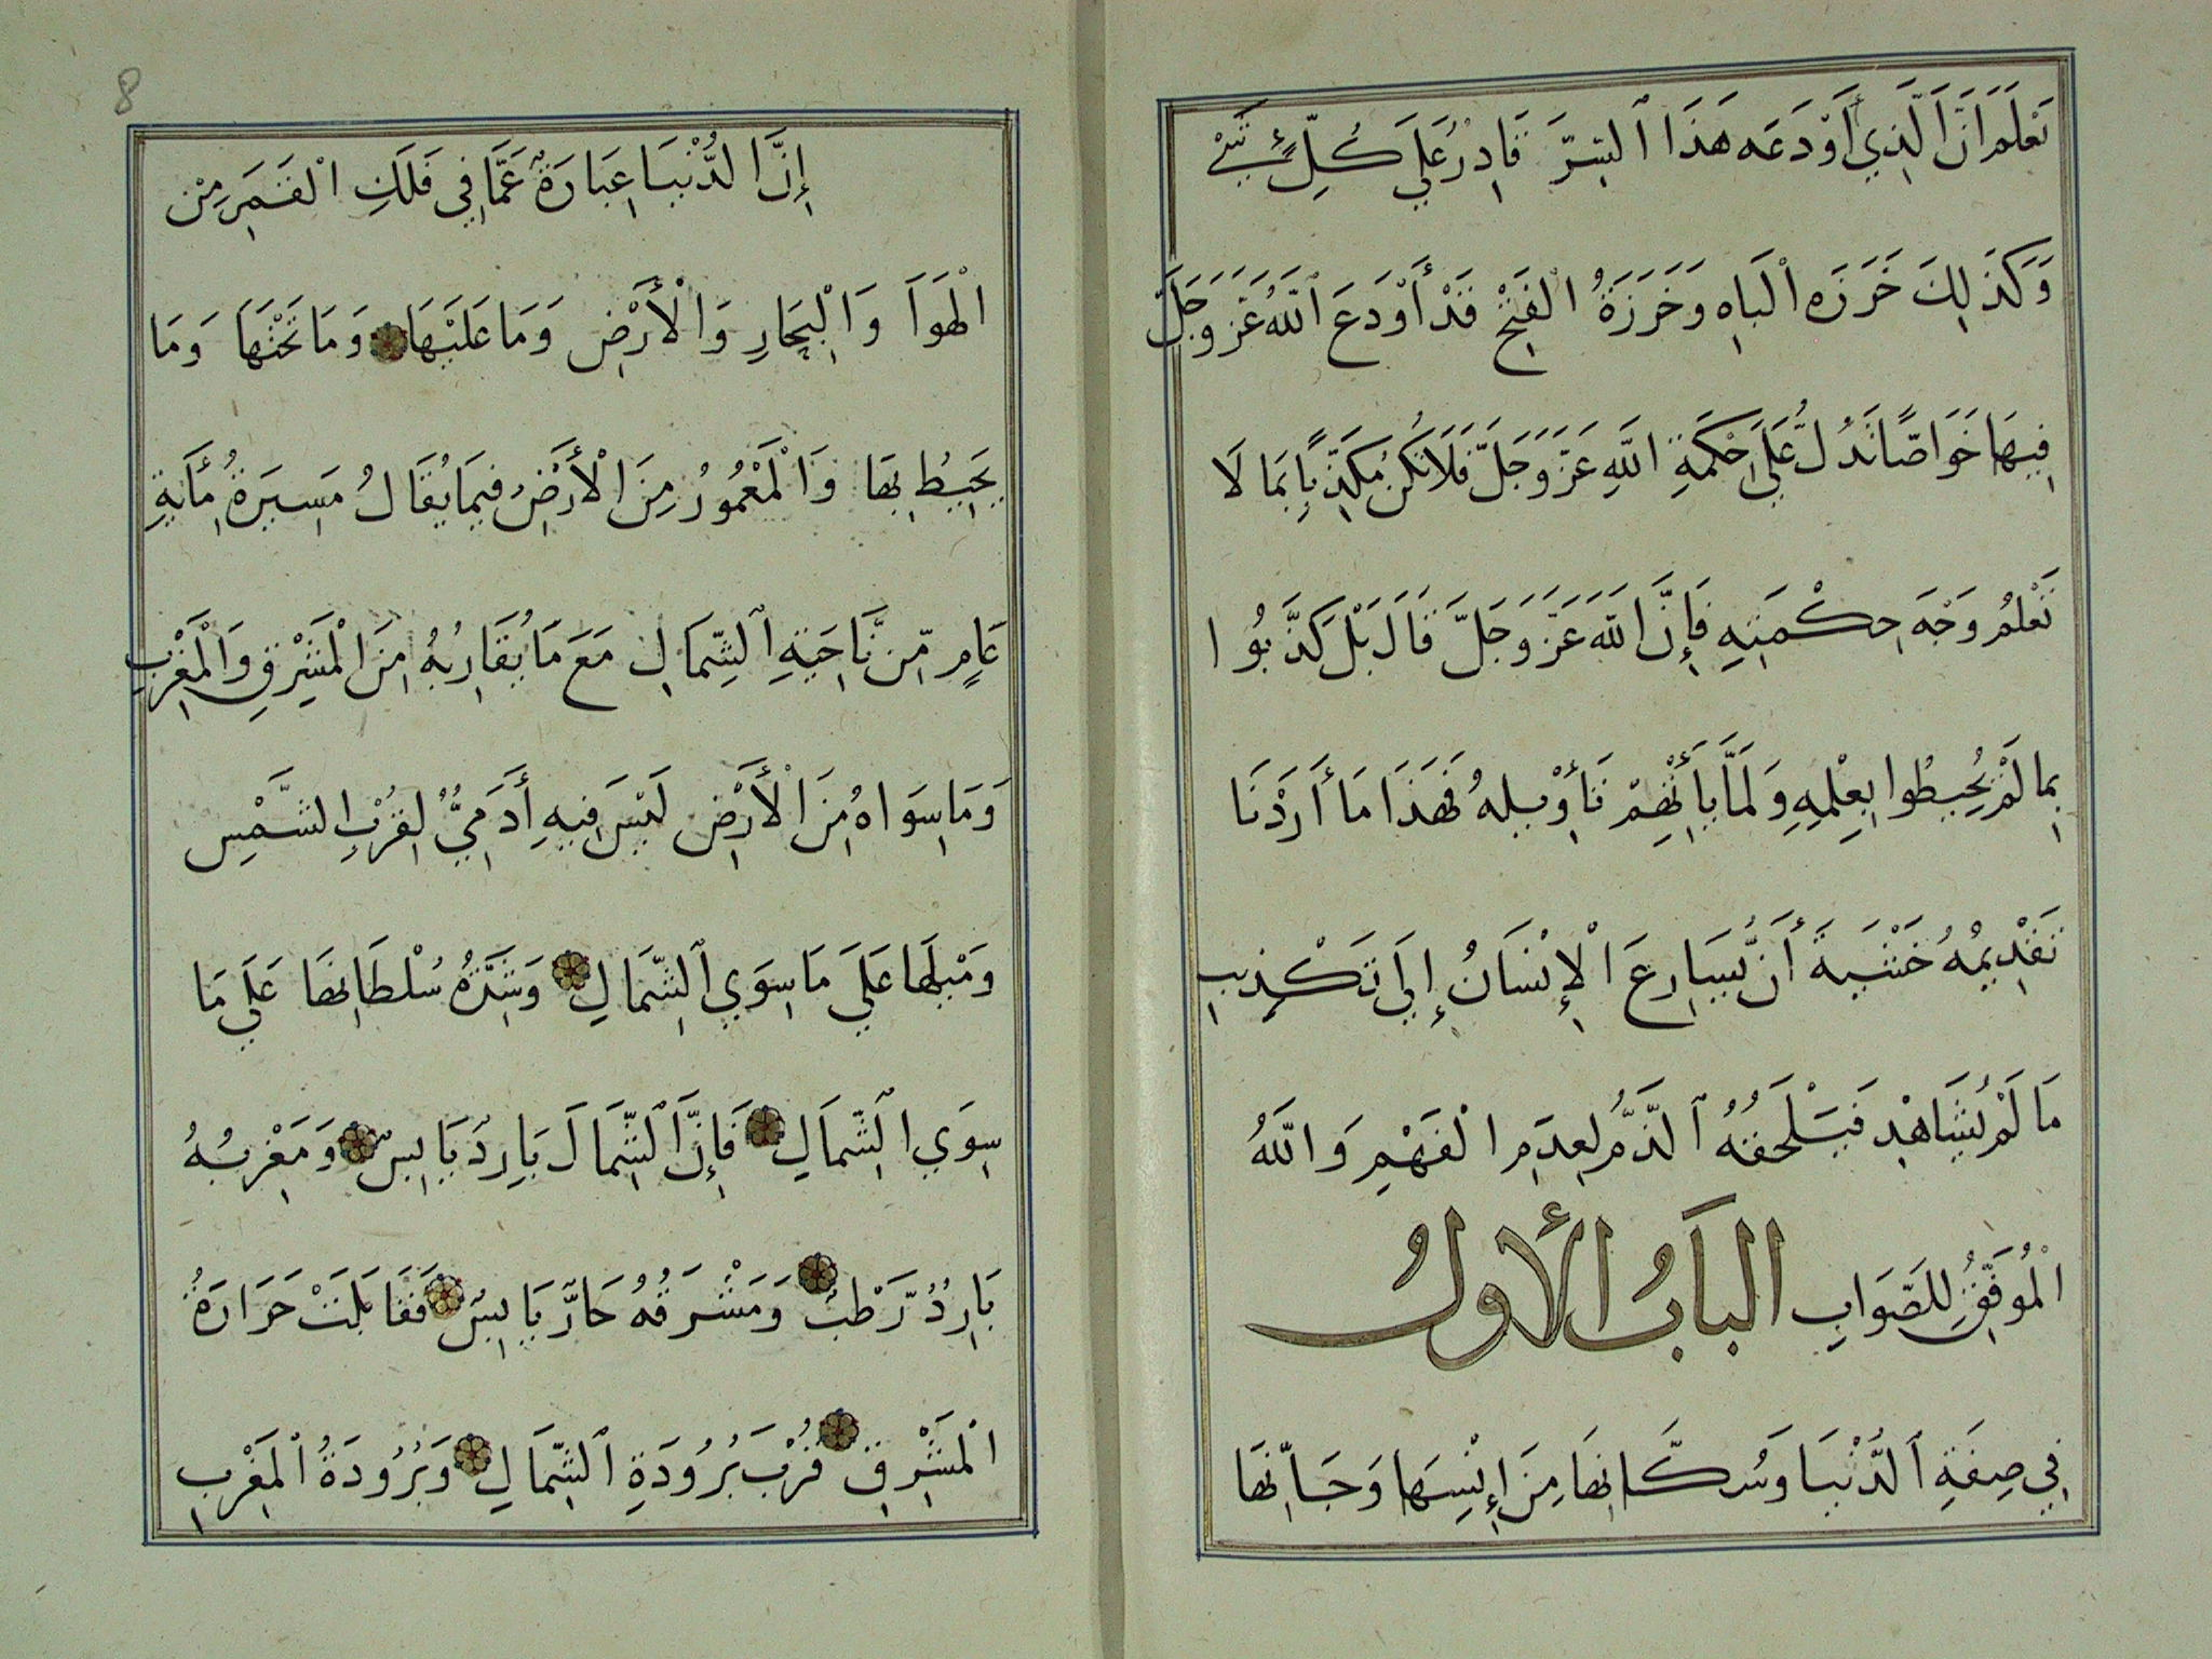 تَعْلَمَ اَنَّ الَّذِي أَوْدَعَه هَذَا ٱلسِّرَّ قَادِرٌ عَلَي كُلِّ شَيْءٍ
وَكَذَلِكَ خَرَزَه الْبَاهِ وَخَرَزَةُ الفَتِحْ قَدْ أَوْدَعَ ٱللَّهُ عَزَ وَجَلَّ
فِيهَا خَوَاصًّا تَدُلُّ عَلَي حِكْمَةِ اللَّهِ عَزَّ وَجَلَّ فَلَا تَكُنْ مُكَذِّبًا بِمَا لَا
تَعْلَمُ وَجْهَ حِكْمَتِهِ فَإِنَّ اللَّهَ عَزَّ وَجَلَّ قَالَ بَلْ كَذَّبُوا
بِمَا لَمْ يُحِيطُوا بِعِلْمِهِ وَلَمَّا يَأْتِهِمْ تَأْوِيلهُ فَهَذَا مَا أَرَدْنَا
تَقْدِيمُهُ خَشْيَةَ أَن يُّسَارِعَ الْإِنْسَانُ إِلَي تَكْذِيبِ
مَا لَمْ يُشَاهِدْ فَيَلْحَقُهُ ٱلذَّمُّ لِعِدَمِ الْفَهْمِ وَاللَّهُ
الْمُوَفِّقُ لِلصَّوَابِ البَابُ الأَولُ
فِي صِفَةِ ٱلدُّنْيَا وَسُكَّانِهَا مِنَ إِنْسِهَا وَجَانِّهَا
8
إِنَّ الدُّنْيَا عِبَارَةٌ عَمَّا فِي فَلَكِ الْقَمَرِ مِنْ
الْهَوَآ وَالْبِحَارِ وَالْأَرْضِ وَمَا عَلَيْهَا وَمَا تَحْتَهَا وَمَا
يُحِيطُ بِهَا وَالْمَعْمُورُ مِنَ الْأَرْضِ فِيمَا يُقَالُ مَسِيرَةُ مِأَيةِ
عَامٍ مِّن نَّاحِيَةِ ٱلشِّمَالِ مَعَ مَا يُقَارِبُهُ مِنَ الْمَشْرِقِ وَالْمَغْرِبِ
وَمَا سِوَاهُ مِنَ الْأَرْضِ لَيْسَ فِيهِ أَدَمِيٌّ لِقُرْبِ الشَّمْسِ
وَمَيْلِهَا عَلَي مَا سِوَي ٱلشِّمَالِ وَشِدَّةُ سُلْطَانِهَا عَلَي مَا
سِوَي الشِّمَالِ فَإِنَّ ٱلشِّمَالَ بَارِدٌ يَابِسٌ وَمَغْرِبُهُ
بَارِدٌ رَّطْبٌ وَمَشْرَقُهُ حَارٌّ يَابِسٌ فَقَابَلَتْ حَرَارَةُ
الْمَشْرِقِ قُرْبَ بُرُودَةِ ٱلشِّمَالِ وَبُرُودَةُ ٱلْمَغْرِبِ